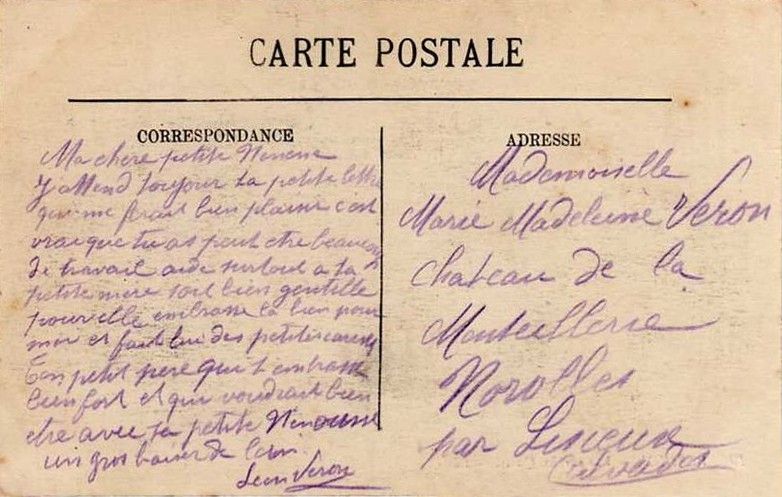 CARTE POSTALE
CORRESPONDANCE
Ma chere petite Nenene
J attend toujour ta petite lettre
qui me ferait bien plaisir c est
vrai que tu as peut etre beaucoup
de travail aide surtout a ta
petite mere soit bien gentille
pour elle embrasse la bien pour
moi et fait lui des petites caresses
Ton petit pere qui t embrasse
bien fort et qui voudrait bien
etre avec sa petite Nenousse
un gros baiser de loin
Leon Veron
ADRESSE
Mademoiselle
Marie Madeleine Veron
Chateau de la
Monteillerie
Norolles
par Lisieux
Calvados